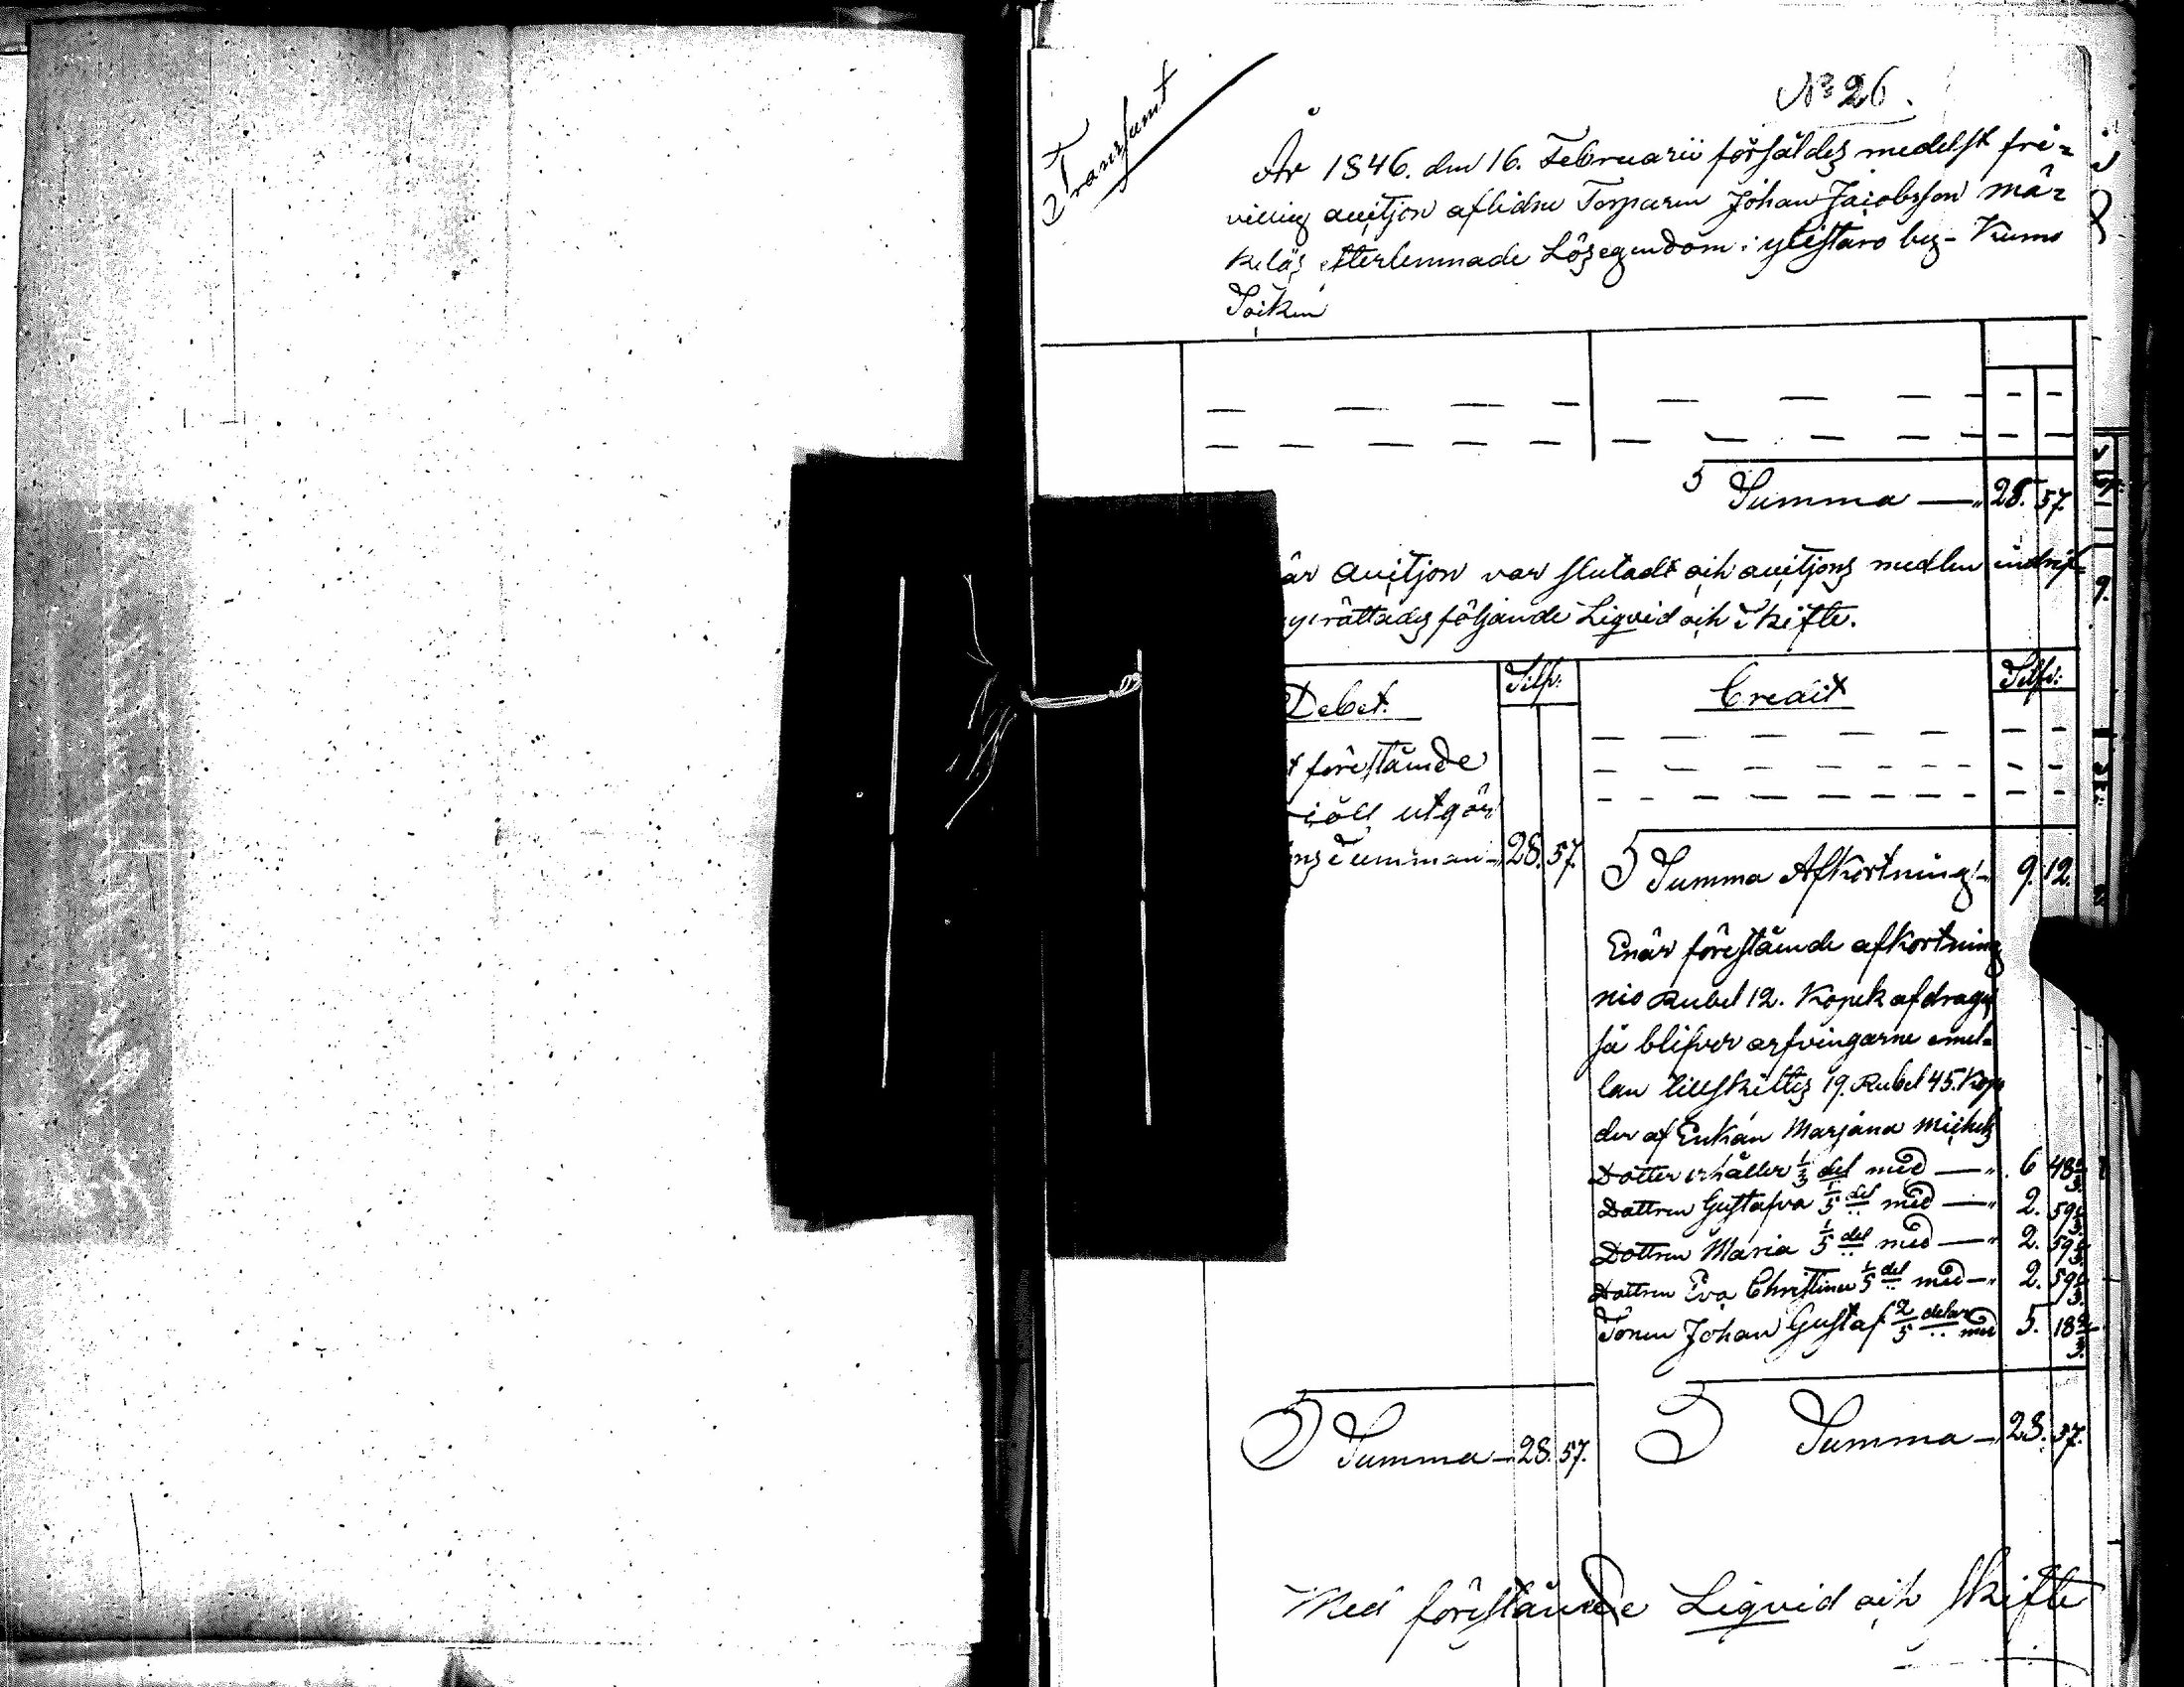 Transsumt
No 26.
År 1846. den 16. Februarii försåldes medelst fri=
villig auction aflidne Torparen Johan Jacobsson Mär
keläs efterlemnade Lösegendom i Ylistaro by - Kumo
Socken
Summa — 28. 57.
är auction var slutadt och auctions medlen indrif=
upprättades följande Liqvid och Skifte.
Debet. Silfv: Credit Silfv:
t förestående
coll utgör
ns Summan - 28. 57.
Summa Afkortning - 9. 12.
Enär förestående afkortning
nio Rubel 12. Kopek afdrages
så blifver arfvingarne emel=
lan till skiftes 19. Rubel 45. Kop
der af Enkan Marjana Michels
Dotter erhåller 1/3 del med — 6 48 1/3.
Dottren Gustafva 1/5 del med — 2. 59 1/3.
Dottren Maria 1/5 del med — 2. 59 1/3.
Dottren Eva Christina 1/5 del med — 2. 59 1/3.
Sonen Johan Gustaf 2/5 delar med 5. 18 2/3.
Summa - 28. 57. Summa - 28. 57.
Med förestående Liqvid och skifte